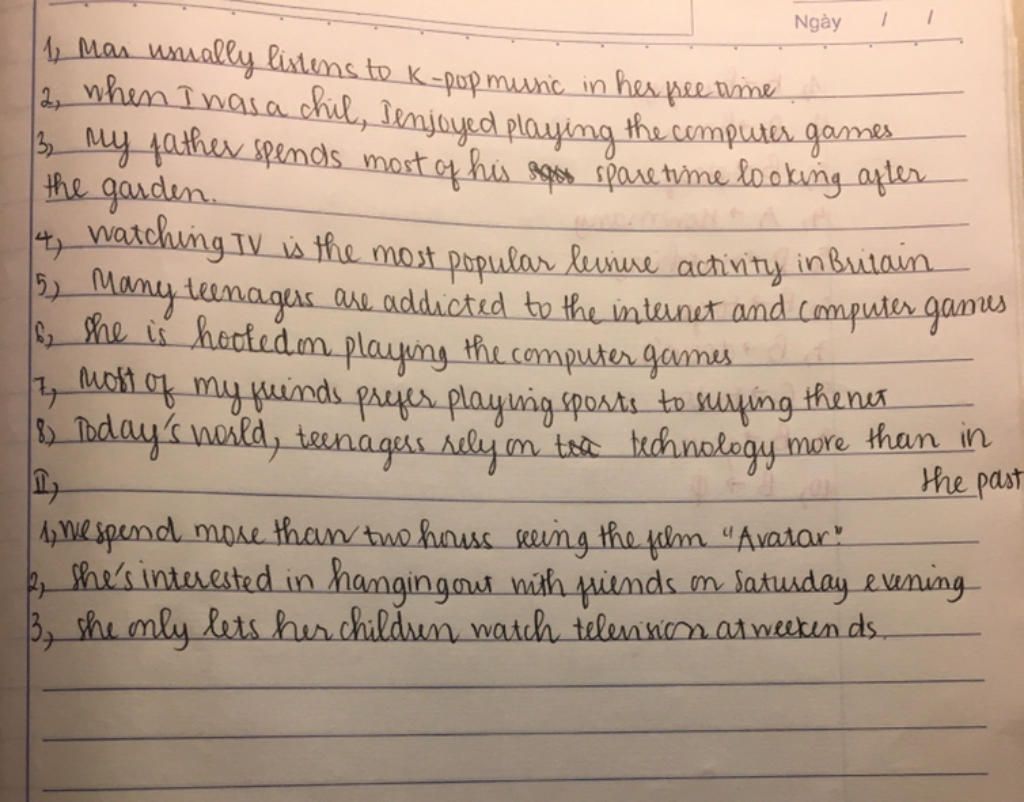 Ngày / /
1, Mai usually listens to K-pop music in her free time.
2, when I was a chil, I enjoyed playing the computer games
3, My father spends most of his spare time looking after
the garden.
4, watching TV is the most popular leisure activity in Britain
5, Many teenagers are addicted to the internet and computer games
6, she is hooted on playing the computer games
7, most of my friends prefer playing sports to surfing the net
8, Today's world, teenagers rely on technology more than in
the past
II,
1, we spend more than two hours seeing the film "Avatar".
2, she's interested in hanging out with friends on Saturday evening
3, she only lets her children watch television at weekends.